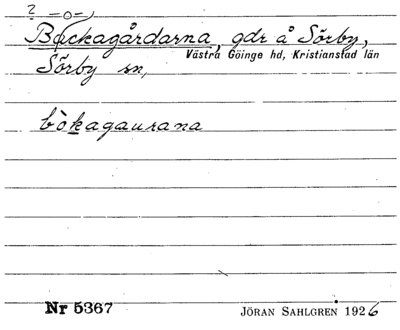 ? -o-
Backagårdarna, gdr å Sörby,
Västra Göinge hd, Kristianstad län
Sörby sn,
bòkagaurana
Nr 5367
JÖRAN SAHLGREN 1926